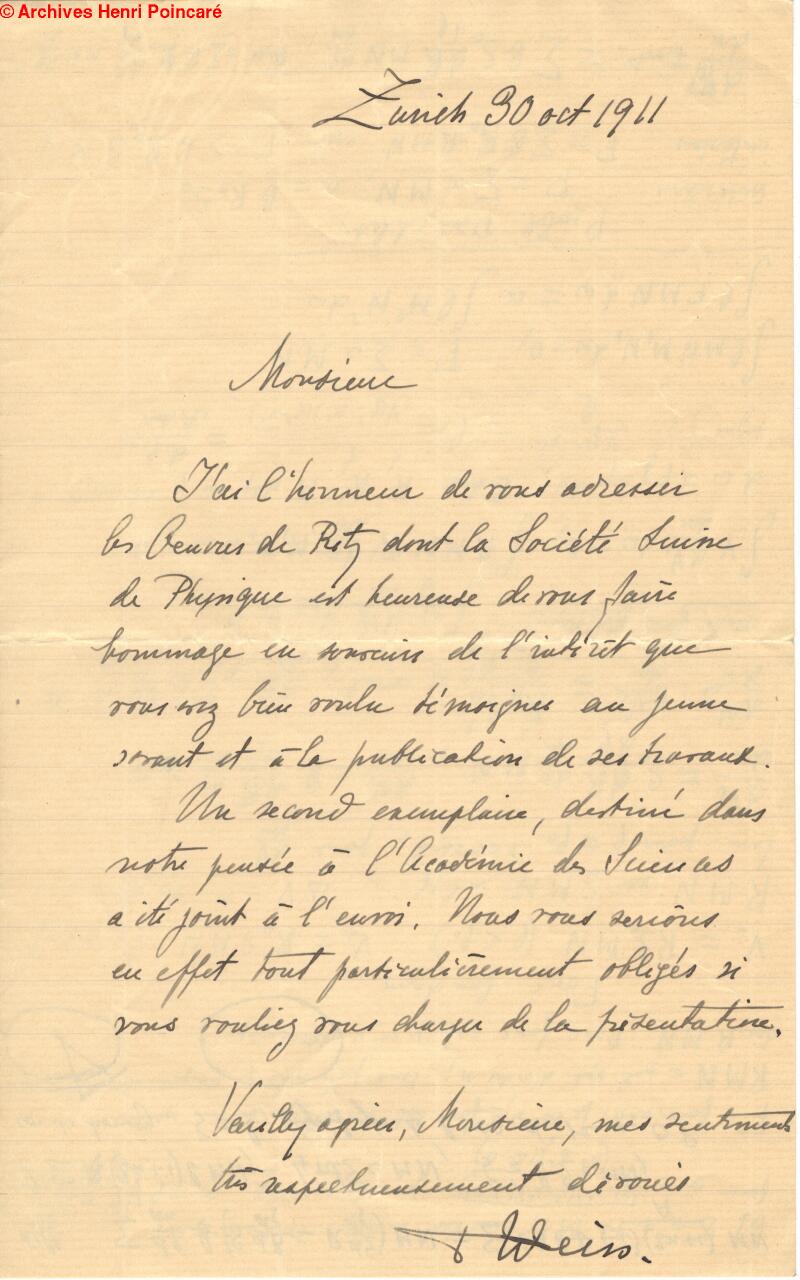 © Archives Henri Poincaré
Zurich 30 oct 1911
Monsieur
J'ai l'honneur de vous adresser
les Oeuvres de Ritz dont la Société Suisse
de Physique est heureuse de vous faire
hommage en souvenir de l'intérêt que
vous avez bien voulu témoigner au jeune
savant et à la publication de ses travaux.
Un second exemplaire, destiné dans
notre pensée à l'Académie des Sciences
a été joint à l'envoi. Nous vous serions
en effet tout particulièrement obligés si
vous vouliez vous charger de la présentation.
Veuillez agréer, Monsieur, mes sentiments
très respectueusement dévoués
P Weiss.